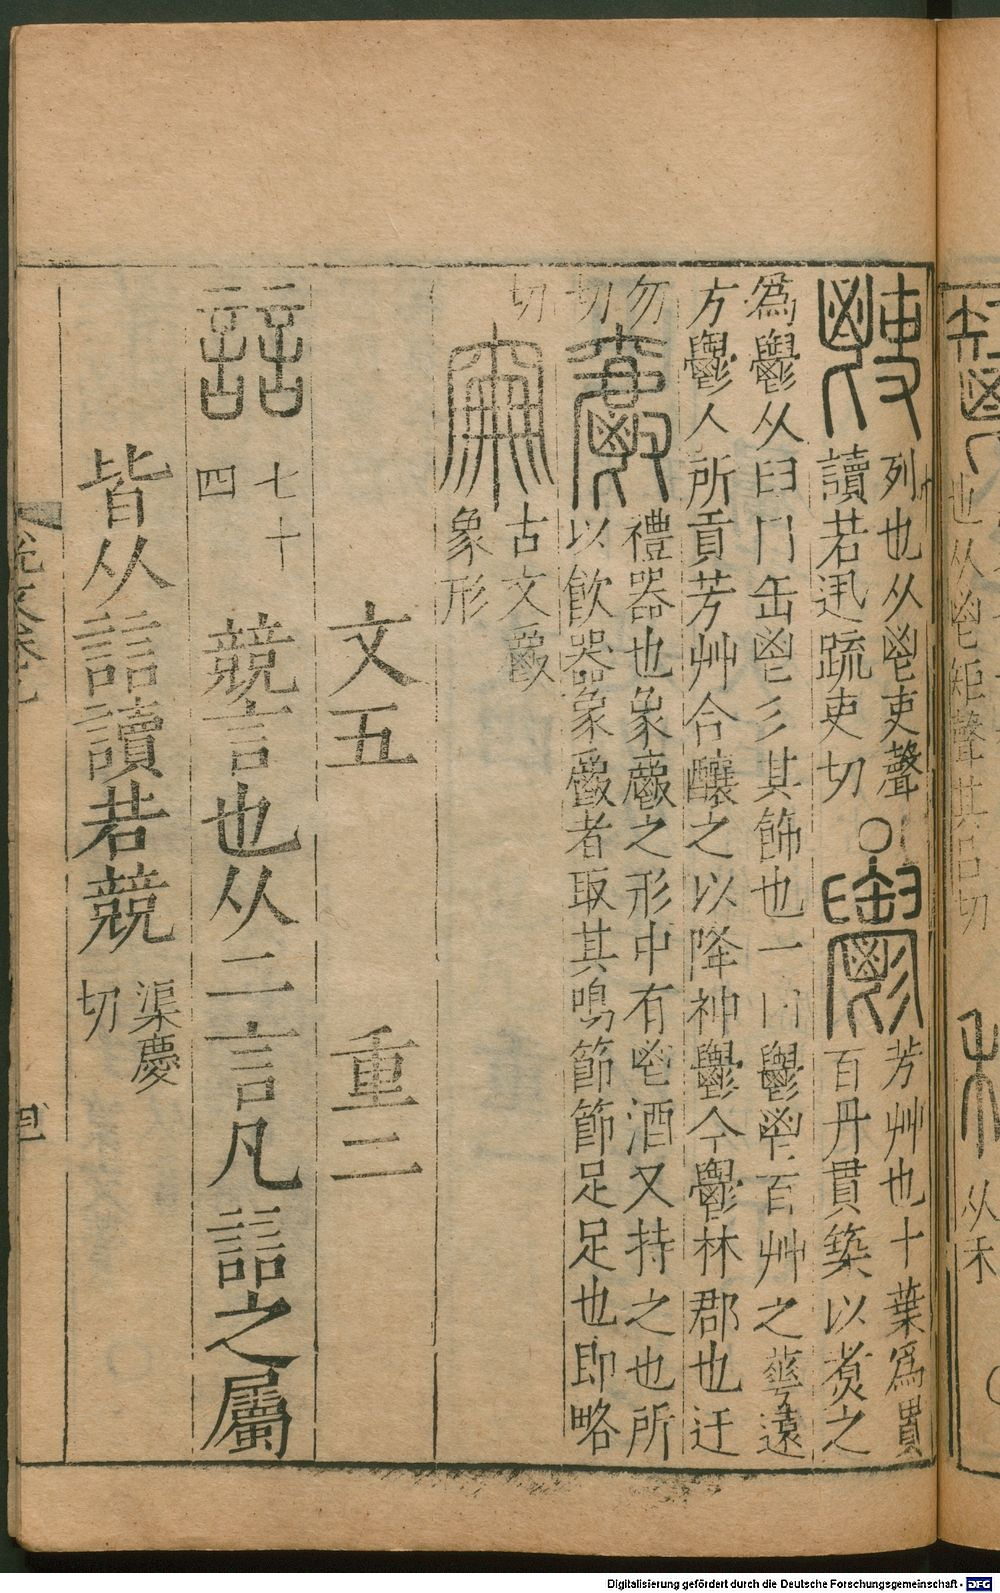 列也从鬯吏聲
讀若迅疏吏切
○
芳艸也十葉為貫
百丹貫築以煑之
為鬱从臼冂缶鬯彡其飾也一曰鬱鬯百艸之華遠
方鬱人所貢芳艸合釀之以降神鬱今鬱林郡也迂
勿
切
禮器也象𩰥之形中有鬯酒又持之也所
以飲器象爵者取其鳴節節足足也即略
切
古文𩰥
象形
文五 重二
誩
七十
四
競言也从二言凡誩之屬
皆从誩讀若競
渠慶
切
也从鬯矩聲其呂切
从禾
Digitalisierung gefördert durch die Deutsche Forschungsgemeinschaft - DFG